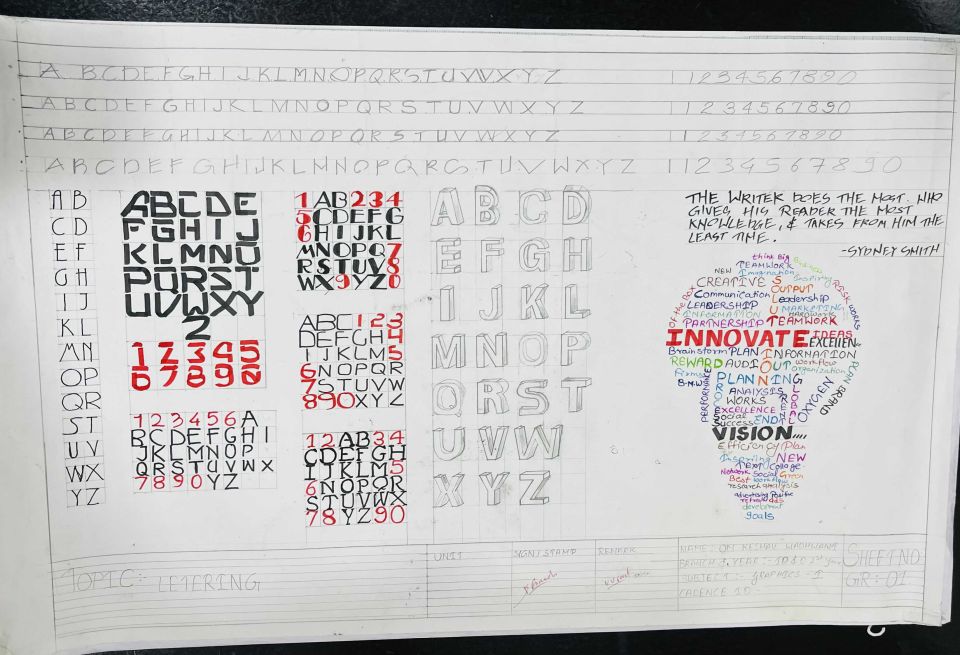 A BCDEFGHIJKLMNOPQRSTUVWXYZ 1 1234567890
ABCDEFGHIJKLMNOPQRSTUVWXYZ 1 1234567890
ABCDEFGHIJKLMNOPQRSTUVWXYZ 1 1234567890
ABCDEFGHIJKLMNOPQRSTUVWXYZ 1 1234567890
A B
C D
E F
G H
I J
K L
M N
O P
Q R
S T
U V
W X
Y Z
ABCDE
FGHIJ
KLMNO
PQRST
UVWXY
2
12345
67890
123456A
BCDEFGHI
JKLMNOP
QRSTUVWX
7890YZ
1AB234
5CDEFG
6HIJKL
MNOPQ7
RSTUV8
WX9YZ0
ABC123
DEFGH4
IJKLM5
6NOPQR
7STUVW
890XYZ
12AB34
CDEFGH
IJKLM5
6NOPQR
STUVWX
78YZ90
ABCD
EFGH
IJKL
MNOP
QRST
UVW
XYZ
THE WRITER DOES THE MOST. WHO
GIVES HIS READER THE MOST
KNOWLEDGE, & TAKES FROM HIM THE
LEAST TIME.
-SYDNEY SMITH
think Big
TEAMWORK
NEW Imagination
CREATIVE
OUTPUT
Communication Leadership
LEADERSHIP MARKETING
INFORMATION
PARTNERSHIP TEAMWORK
of the BOX
RISK WORKS
INNOVATE IDEAS
EXCELLEN..
Brainstorm PLAN INFORMATION
REWARD AUDIO OUT workflow
organization
firms
B.M.W
PLANNING
PERFORMANCE
ANALYSIS
WORKS
OXYGEN
PLAN BRAND
EXCELLENCE
GLOBAL
Social
Success END
VISION....
Efficiency Plan
Inspiring NEW
TEXT College
Network Social Green
Best workflow
research analysis
advertising Pacific
refresh ads
development
goals
TOPIC:- LETERING
UNIT
SIGN/STAMP
REMARK
NAME:- OM KESHAV WADHWANI
BRANCH & YEAR :-
SUBJECT :- GRAPHICS - 1
CADENCE 10 -
SHEET NO
GR: 01